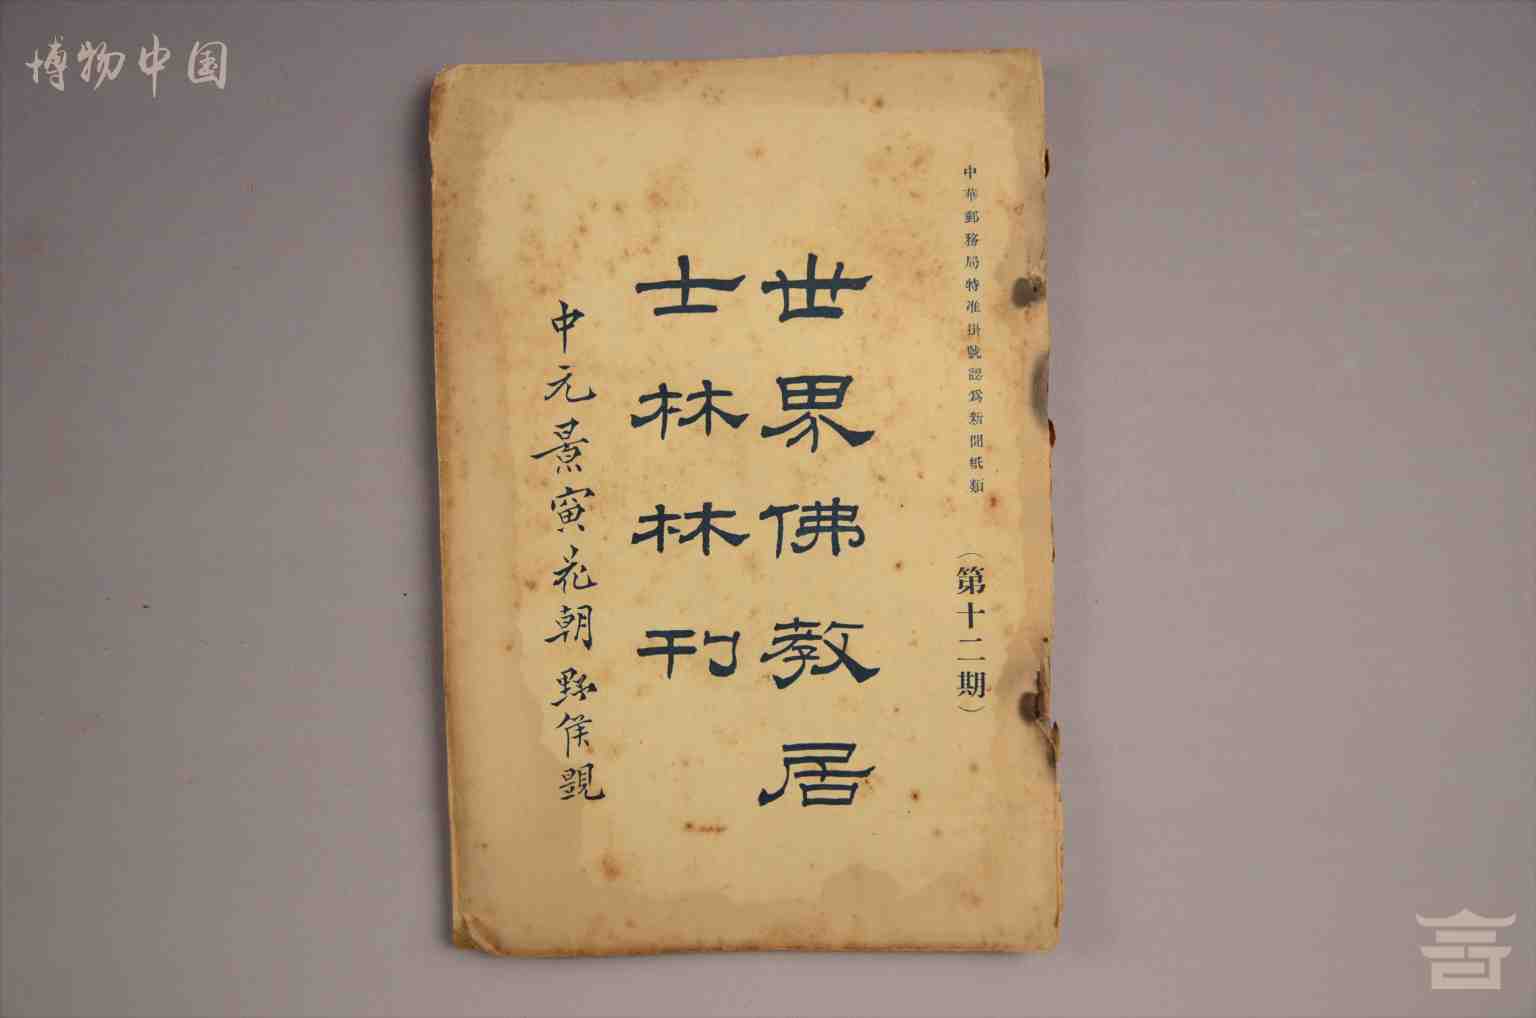 博物中国
中華郵務局特准掛號認爲新聞紙類
(第十二期)
世界佛教居
士林林刊
中元景寅花朝野侯題